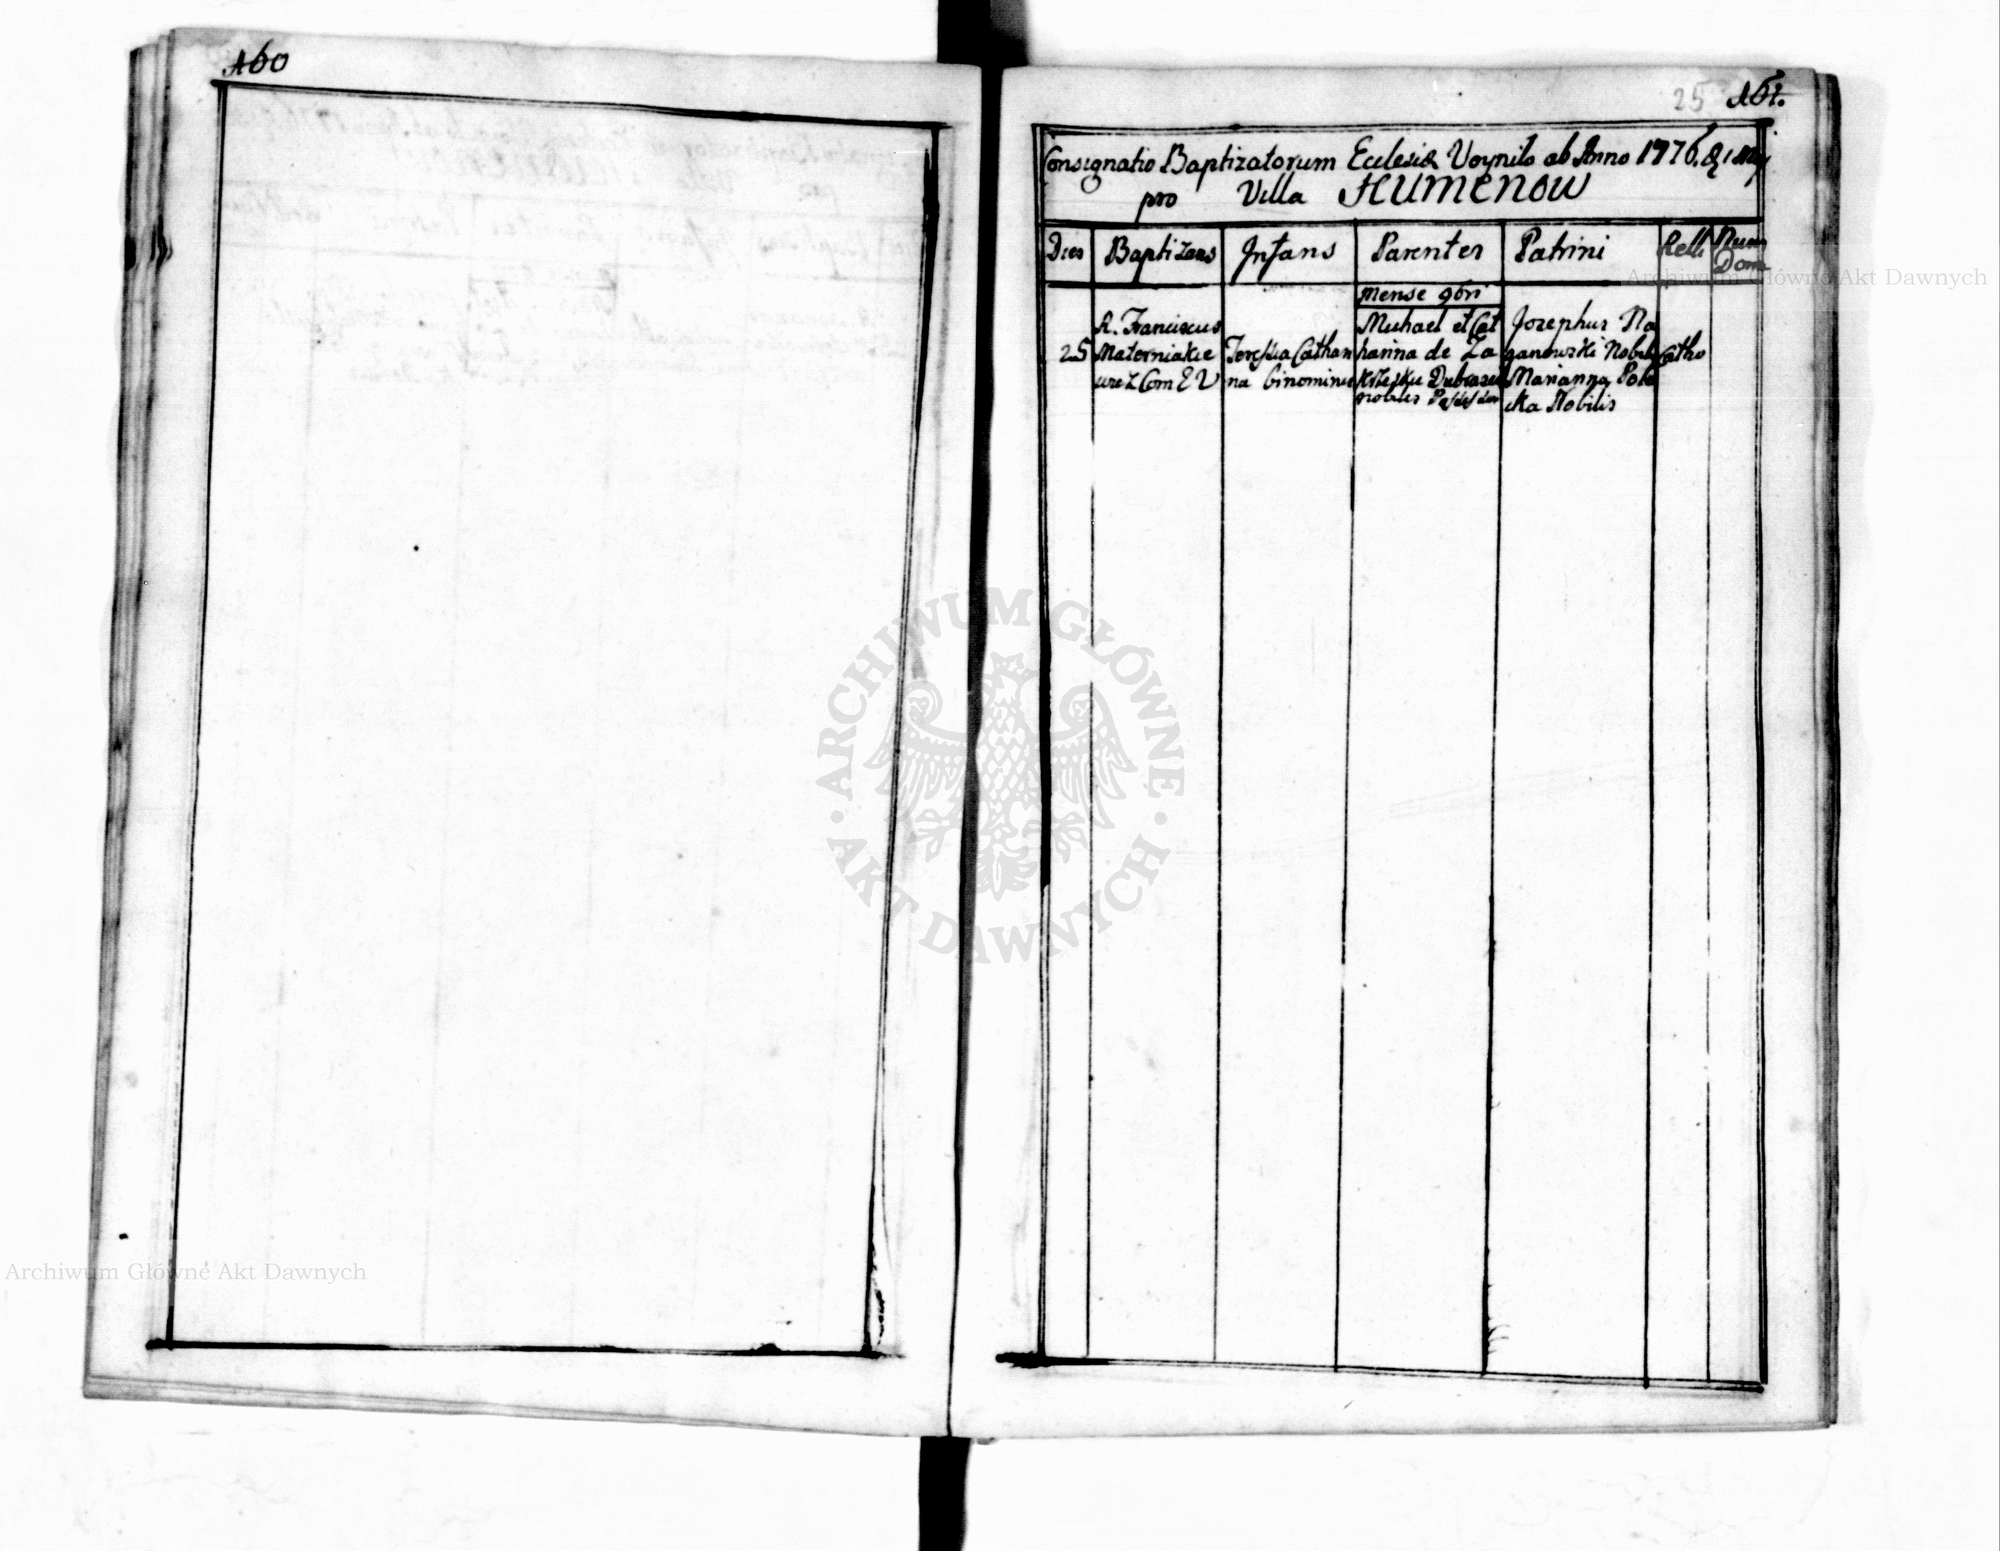 160
25 161.
Consignatio Baptizatorum Ecclesiæ Voynilo ab Anno 1776.
pro Villa HUMENOW
Dies Baptizans Infans Parentes Patrini Relli Num
Dom
Archiwum Główne Akt Dawnych
Mense 9bri
25
R. Franciscus
Materniakie
wicz Com E V
Teressia Cathari
na binominis
Michael et Cat
harina de Za
nobiles
Josephus Na
ganowski Nobilis
Marianna Pole
cka Nobilis
Catho
ARCHIWUM GŁÓWNE
AKT DAWNYCH
Archiwum Główne Akt Dawnych